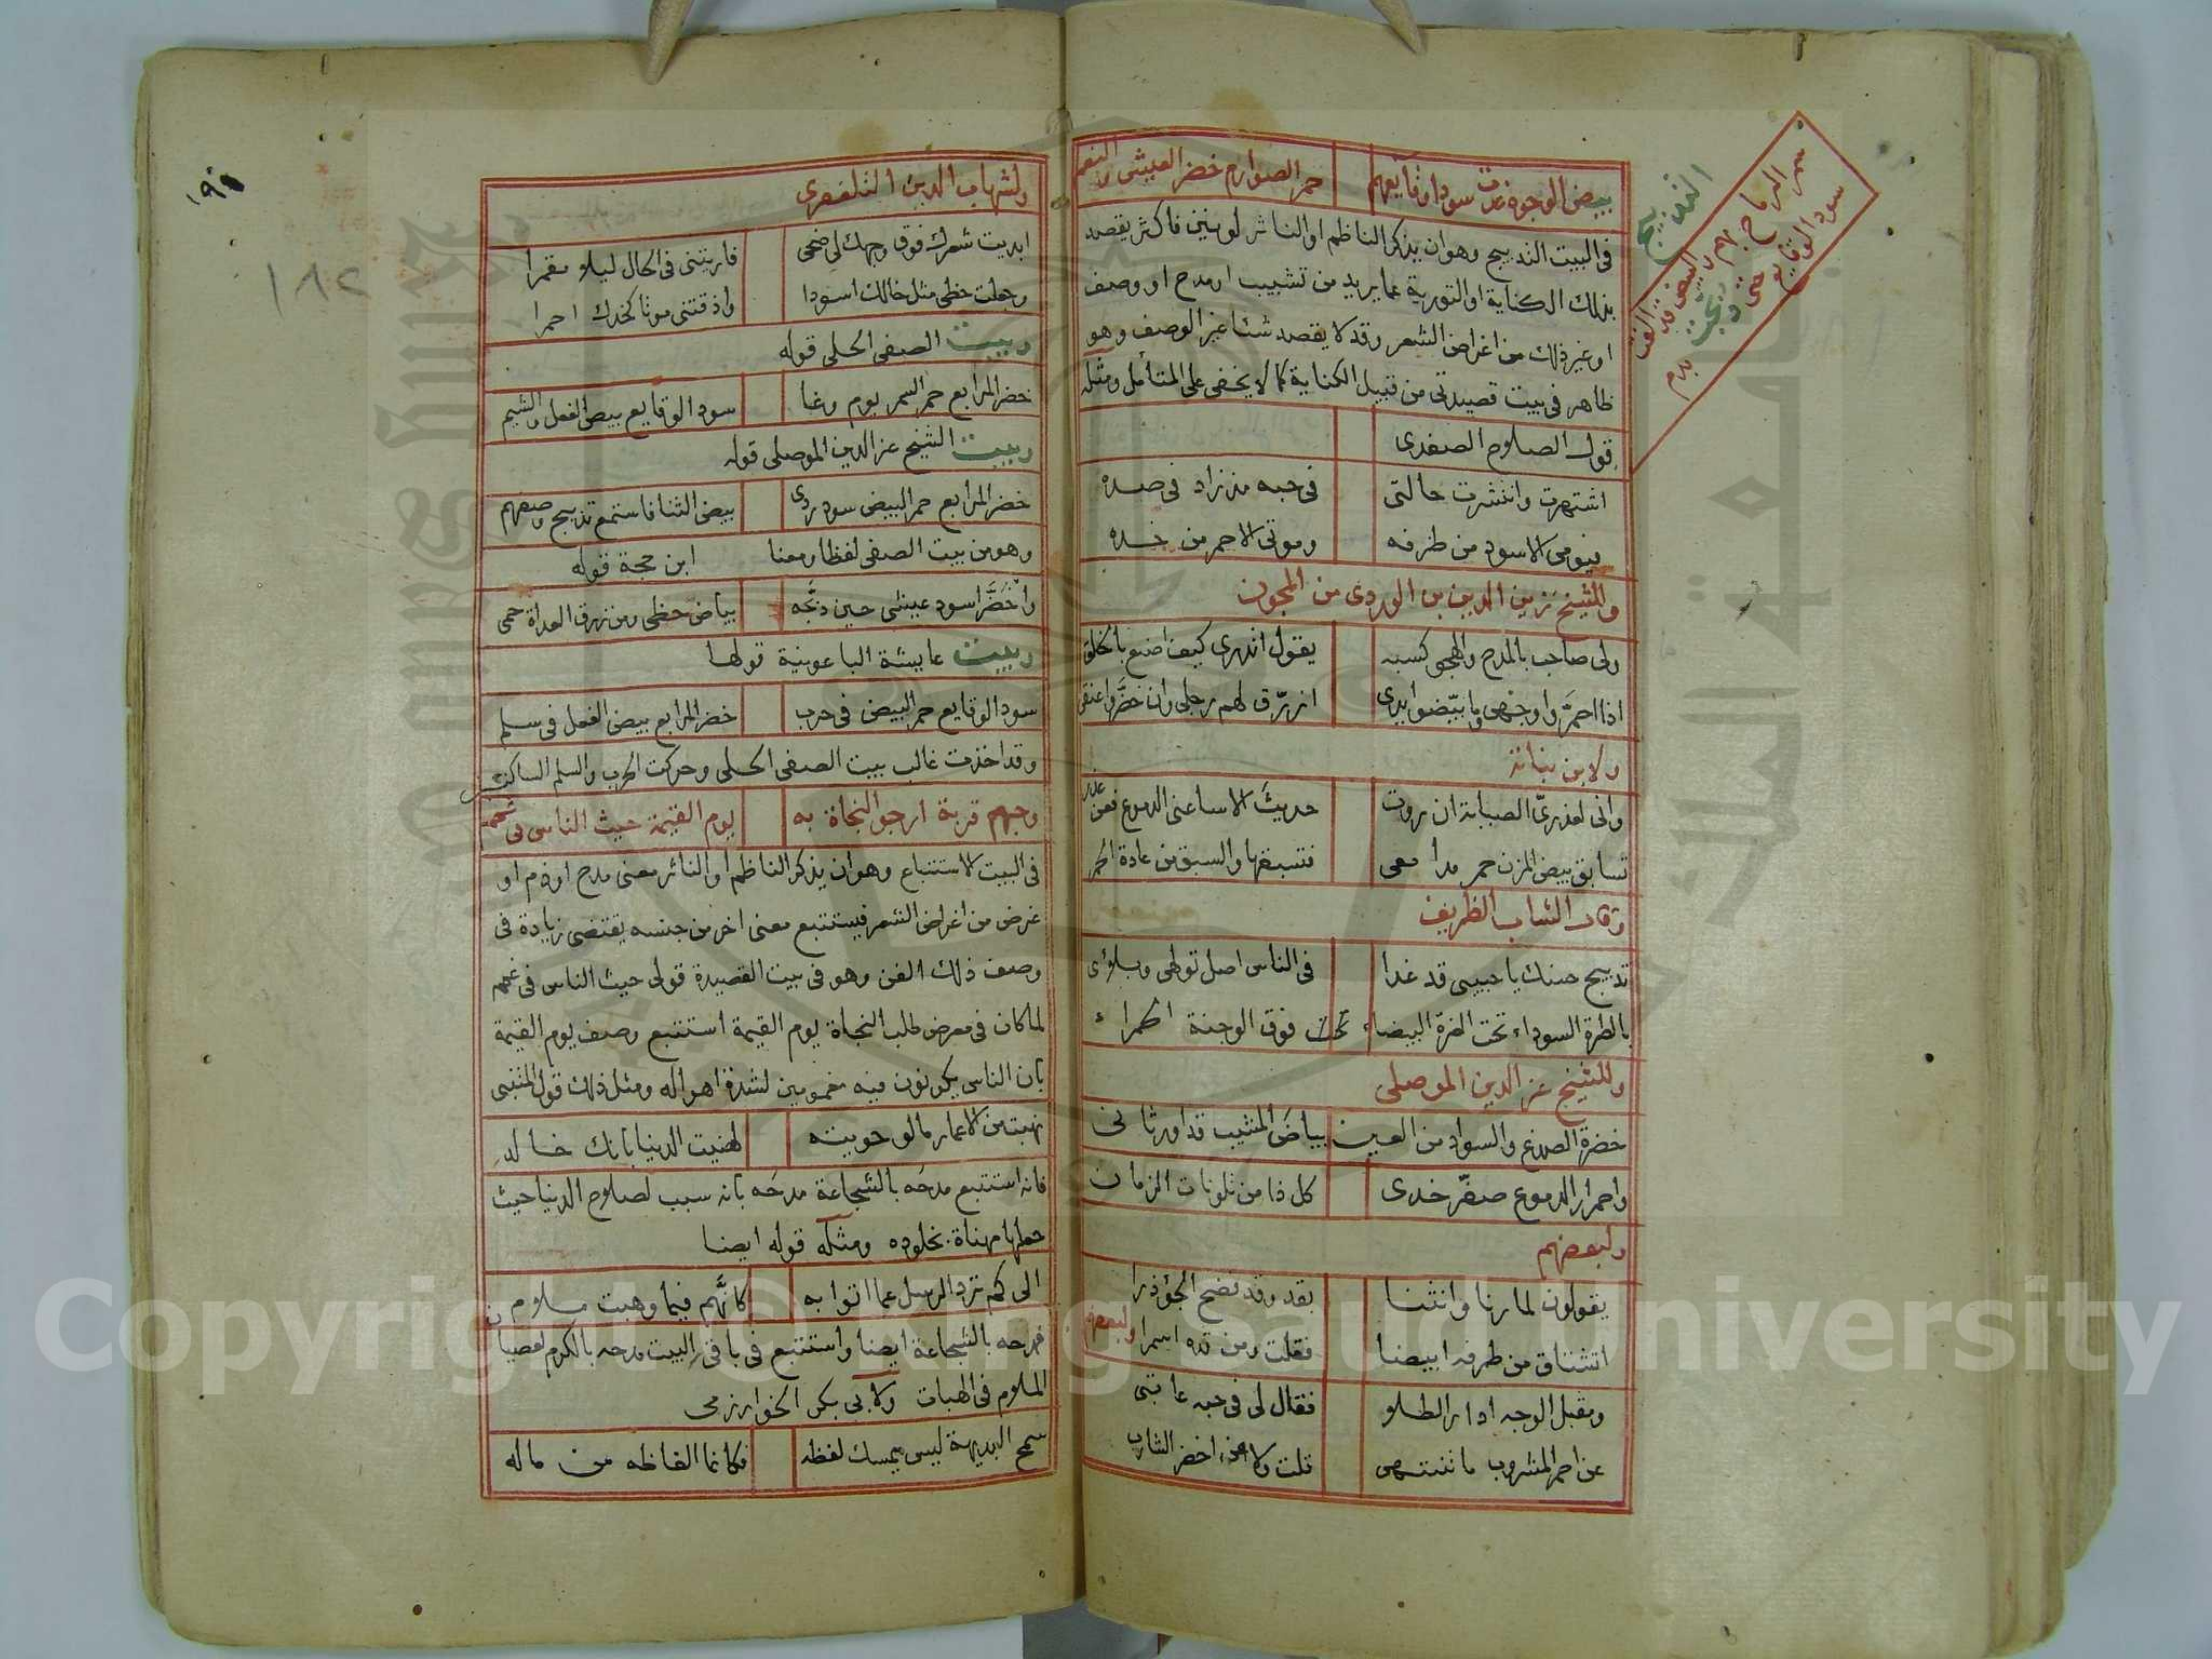 بيض الوجوه غدت سودا وقايعهم حمر الصوارم خضر العيش والنعم
في البيت التدبيج وهو ان يذكر الناظم او الناثر لونين فاكثر يقصد
بذلك الكناية او التورية عما يريد من تشبيب او مدح او وصف
او غير ذلك من اغراض الشعر وقد لا يقصد شئا غير الوصف وهو
ظاهر في بيت قصيدتي من قبيل الكناية كما لا يخفى على المتأمل ومثله
قول الصلاح الصفدي
اشتهرت وانتشرت حالتي في حبه مذ زاد في صده
فيومي الاسود من طرفه وموتي الاحمر من خده
وللشيخ زين الدين بن الوردي من المجون
ولي صاحب بالمدح والهجو كسبه يقول اتدري كيف اصنع بالخلق
اذا احمرّوا وجهي وما بيّضوا يدي ازرّق لهم رجلي وان خضّروا عنقي
ولابن نباته
واني لعذريّ الصبابة ان روت حديث الاسا عني الدموع فعن غدر
تسابق بيض المزن حمر مدامعي فتسبقها والسبق من عادة الحمر
وقال الشاب الظريف
تدبيج حسنك يا حبيبي قد غدا في الناس اصل تولهي وبلائي
بالطرة السوداء تحت الغرة البيضاء تحت فوق الوجنة الحمراء
وللشيخ عز الدين الموصلي
خضرة الصدغ والسواد من العين بياض المشيب قد اورثاني
واحمرار الدموع صفّر خدي كل ذا من تلونات الزمان
ولبعضهم
يقولون لما رنا وانثنا بقد وقد نضح الجؤذرا
اتشتاق من طرفه ابيضا فقلت ومن قده اسمرا ولبعضهم
ومقبل الوجه ادار الطلا فقال لي في حبه عاتبي
عن احمر المشروب ما تنتهي قلت ولا عن اخضر الشارب
التدبيج
سمر الرماح بهم
سود الوقايع حتى دبجت بدم
١٩٠
١٨٢
ولشهاب الدين التلعفري
ابديت شعرك فوق وجهك لي ضحى فاريتني في الحال ليلا مقمرا
وجعلت حظي مثل خالك اسودا واذقتني موتا كخدك احمرا
وبيت الصفي الحلي قوله
خضر المرابع حمر السمر يوم وغا سود الوقايع بيض الفعل والشيم
وبيت الشيخ عز الدين الموصلي قوله
خضر المرابع حمر البيض سود ردى بيض الثنا فاستمع تدبيج وصفهم
وهو من بيت الصفي لفظا ومعنا ابن حجة قوله
واخضرّ اسود عيشي حين دبّجه بياض حظي ومن زرق العداة حمي
وبيت عايشة الباعونية قولها
سود الوقايع حمر البيض في حرب خضر المرابع بيض الفعل في سلم
وقد اخذت غالب بيت الصفي الحلي وحركت الحرب والسلم الساكن
وحبهم قربة ارجو النجاة به يوم القيمة حيث الناس في غمم
في البيت الاستتباع وهو ان يذكر الناظم او الناثر معنى مدح او ذم او
غرض من اغراض الشعر فيستتبع معنى اخر من جنسه يقتضي زيادة في
وصف ذلك الفن وهو في بيت القصيدة قولي حيث الناس في غمم
لما كان في معرض طلب النجاة يوم القيمة استتبع وصف يوم القيمة
بان الناس يكونون فيه مغمومين لشدة اهواله ومثل ذلك قول المتنبي
نهبت من الاعمار ما لو حويته لهنيت الدنيا بانك خالد
فانه استتبع مدحه بالشجاعة مدحه بانه سبب لصلاح الدنيا حيث
جعلها مهناة بخلوده ومثله قوله ايضا
الى كم ترد الرسل عما اتوا به كانّهم فيما وهبت ملام
فمدحه بالشجاعة ايضا واستتبع في باقي البيت مدحه بالكرم لعصيان
الملام في الهبات ولابي بكر الخوارزمي
سمح البديهة ليس يمسك لفظه فكانما الفاظه من ماله
Copyright © King Saud University